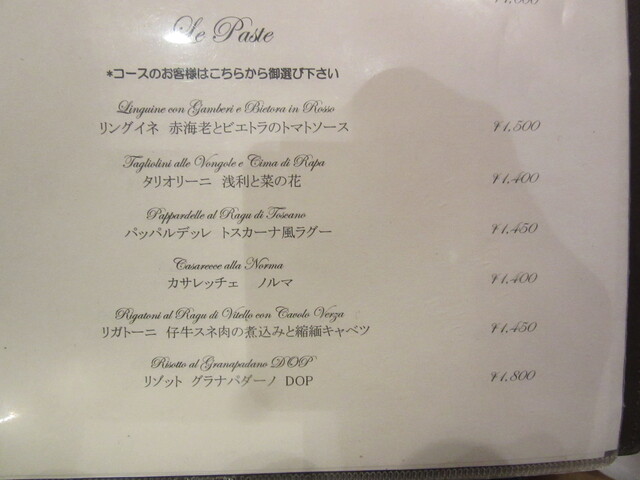 Le Paste
*コースのお客様はこちらから御選び下さい
Linguine con Gamberi e Bietora in Rosso
リングイネ 赤海老とビエトラのトマトソース ¥1,500
Tagliolini alle Vongole e Cima di Rapa
タリオリーニ 浅利と菜の花 ¥1,400
Pappardelle al Ragu di Toscano
パッパルデッレ トスカーナ風ラグー ¥1,450
Casarecce alla Norma
カサレッチェ ノルマ ¥1,400
Rigatoni al Ragu di Vitello con Cavolo Verza
リガトーニ 仔牛スネ肉の煮込みと縮緬キャベツ ¥1,450
Risotto al Granapadano DOP
リゾット グラナパダーノ DOP ¥1,800